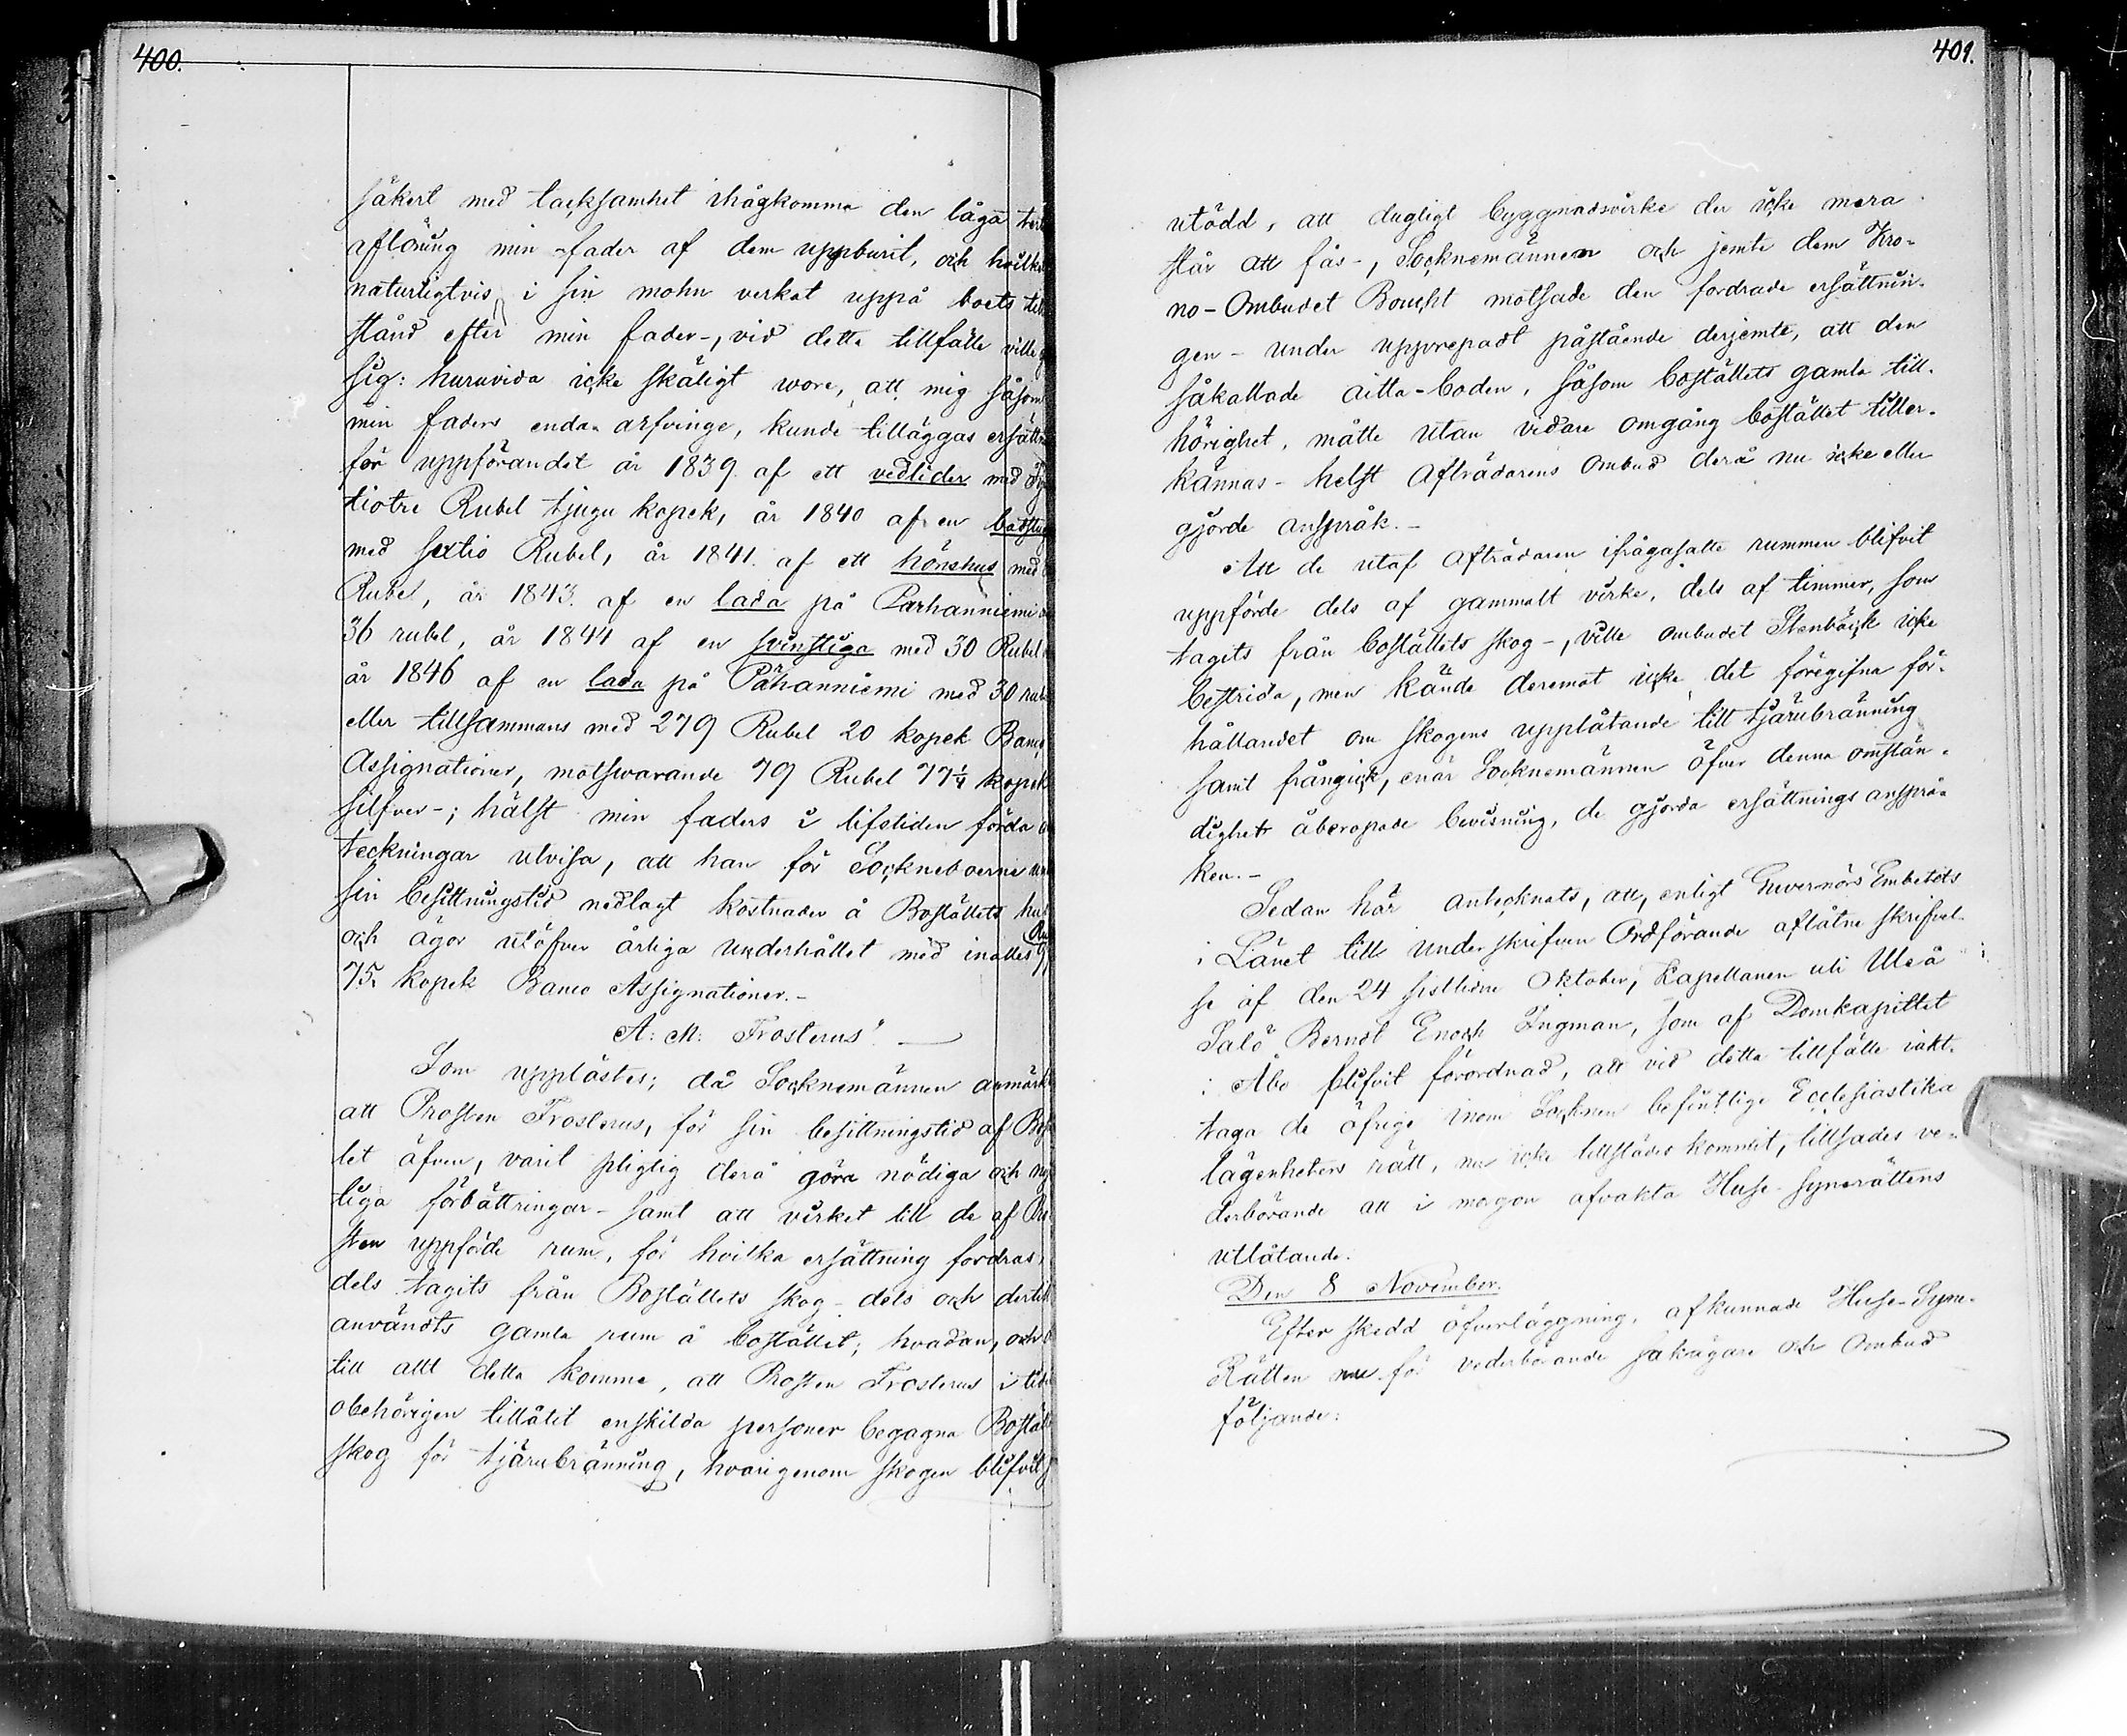 400.
säkert med tacksamhet ihågkomma den låga
aflöning min fader af dem uppburit, och
naturligtvis i sin mohn verkat uppå boets
stånd efter min fader-, vid detta tillfälle ville
sig: huruvida icke skäligt wore, att mig såsom
min faders enda arfvinge, kunde tilläggas
för uppförandet år 1839 af ett vedlider med
tiotre Rubel tjugu kopek, år 1840 af en
med sextio Rubel, år 1841. af ett hönshus med
Rubel, år 1843. af en lada på Parhanniemi
36 rubel, år 1844 af en svinstiga med 30 Rubel
år 1846 af en lada på Pärhanniemi med 30
eller tillsammans med 279 Rubel 20 kopek Banco
Assignationer, motswarande 79 Rubel 77 1/4 kopek
silfver-; hälst min faders i lifstiden förda
teckningar utvisa, att han för Sockneboerne
sin besittningstid nedlagt kostnader å Boställets
och ägor utöfver årliga underhållet med inalles
75 kopek Banco Assignationer.-
A: M: Frosterus".
Som upplästes; då Socknemännen
att Prosten Frosterus, för sin besittningstid af
let äfven, varit pligtig derå göra nödiga och
liga förbättringar - samt att virket till de af
sten uppförde rum, för hvilka ersättning fordras,
dels tagits från Boställets skog - dels och
användts gamla rum å bostället; hvadan, och
till allt detta komme, att Prosten Frosterus i
obehörigen tillåtit enskilda personer begagna
skog för tjärubränning, hvarigenom skogen blifvit
401.
utödd, att dugligt byggnadsvirke der icke mera
står att fås-, Socknemännen och jemte dem Kro-
no-Ombudet Boucht motsade den fordrade ersättnin-
gen - under upprepadt påstående derjemte, att den
såkallade aitta-boden, såsom boställets gamla till-
hörighet, måtte utan vidare omgång bostället tiller-
kännas - helst Afträdarens Ombud derå nu icke eller
gjorde anspråk.-
Att de utaf afträdaren ifrågasatte rummen blifvit
uppförde dels af gammalt virke, dels af timmer, som
tagits från boställets skog-, ville ombudet Stenbäck icke
bestrida, men kände deremot icke det föregifna för-
hållandet om skogens upplåtande till tjärubränning
samt frångick, enär Socknemännen öfver denna omstän-
dighet åberopade bevisning, de gjorda ersättnings ansprå-
ken.-
Sedan här antecknats, att, enligt Guvernörs Embetets
i Länet till underskrifven Ordförande aflåtne skrifvel-
se af den 24 sistledne Oktober, Kapellanen uti Uleå
Salo Berndt Enoch Ingman, som af Domkapitlet
i Åbo blifvit förordnad, att vid detta tillfälle iakt-
taga de öfrige inom Socknen befintlige Ecclesiastika
lägenheters rätt, nu icke tillstädes kommit, tillsades ve-
derbörande att i morgon afvakta Huse-synerättens
utlåtande.
Den 8 November.
Efter skedd öfverläggning, afkunnade Huse-Syne-
Rätten nu för vederbörande sakägare och Ombud
följande: